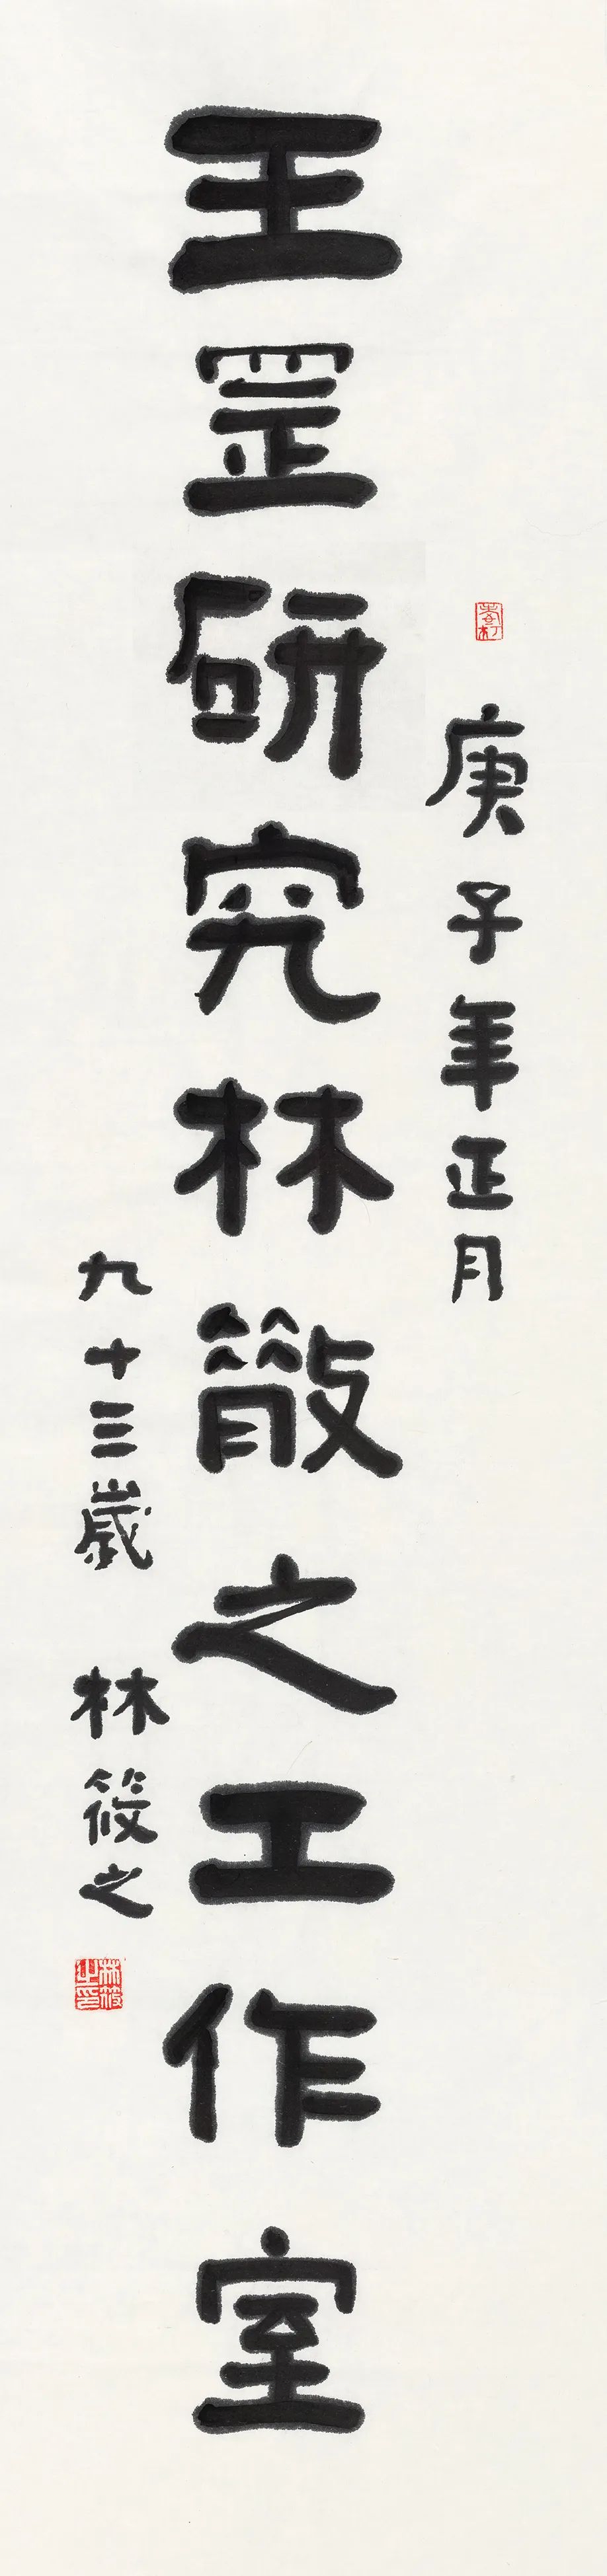 庚子年正月
王罡研究林散之工作室
九十三歲 林筱之
林筱之印